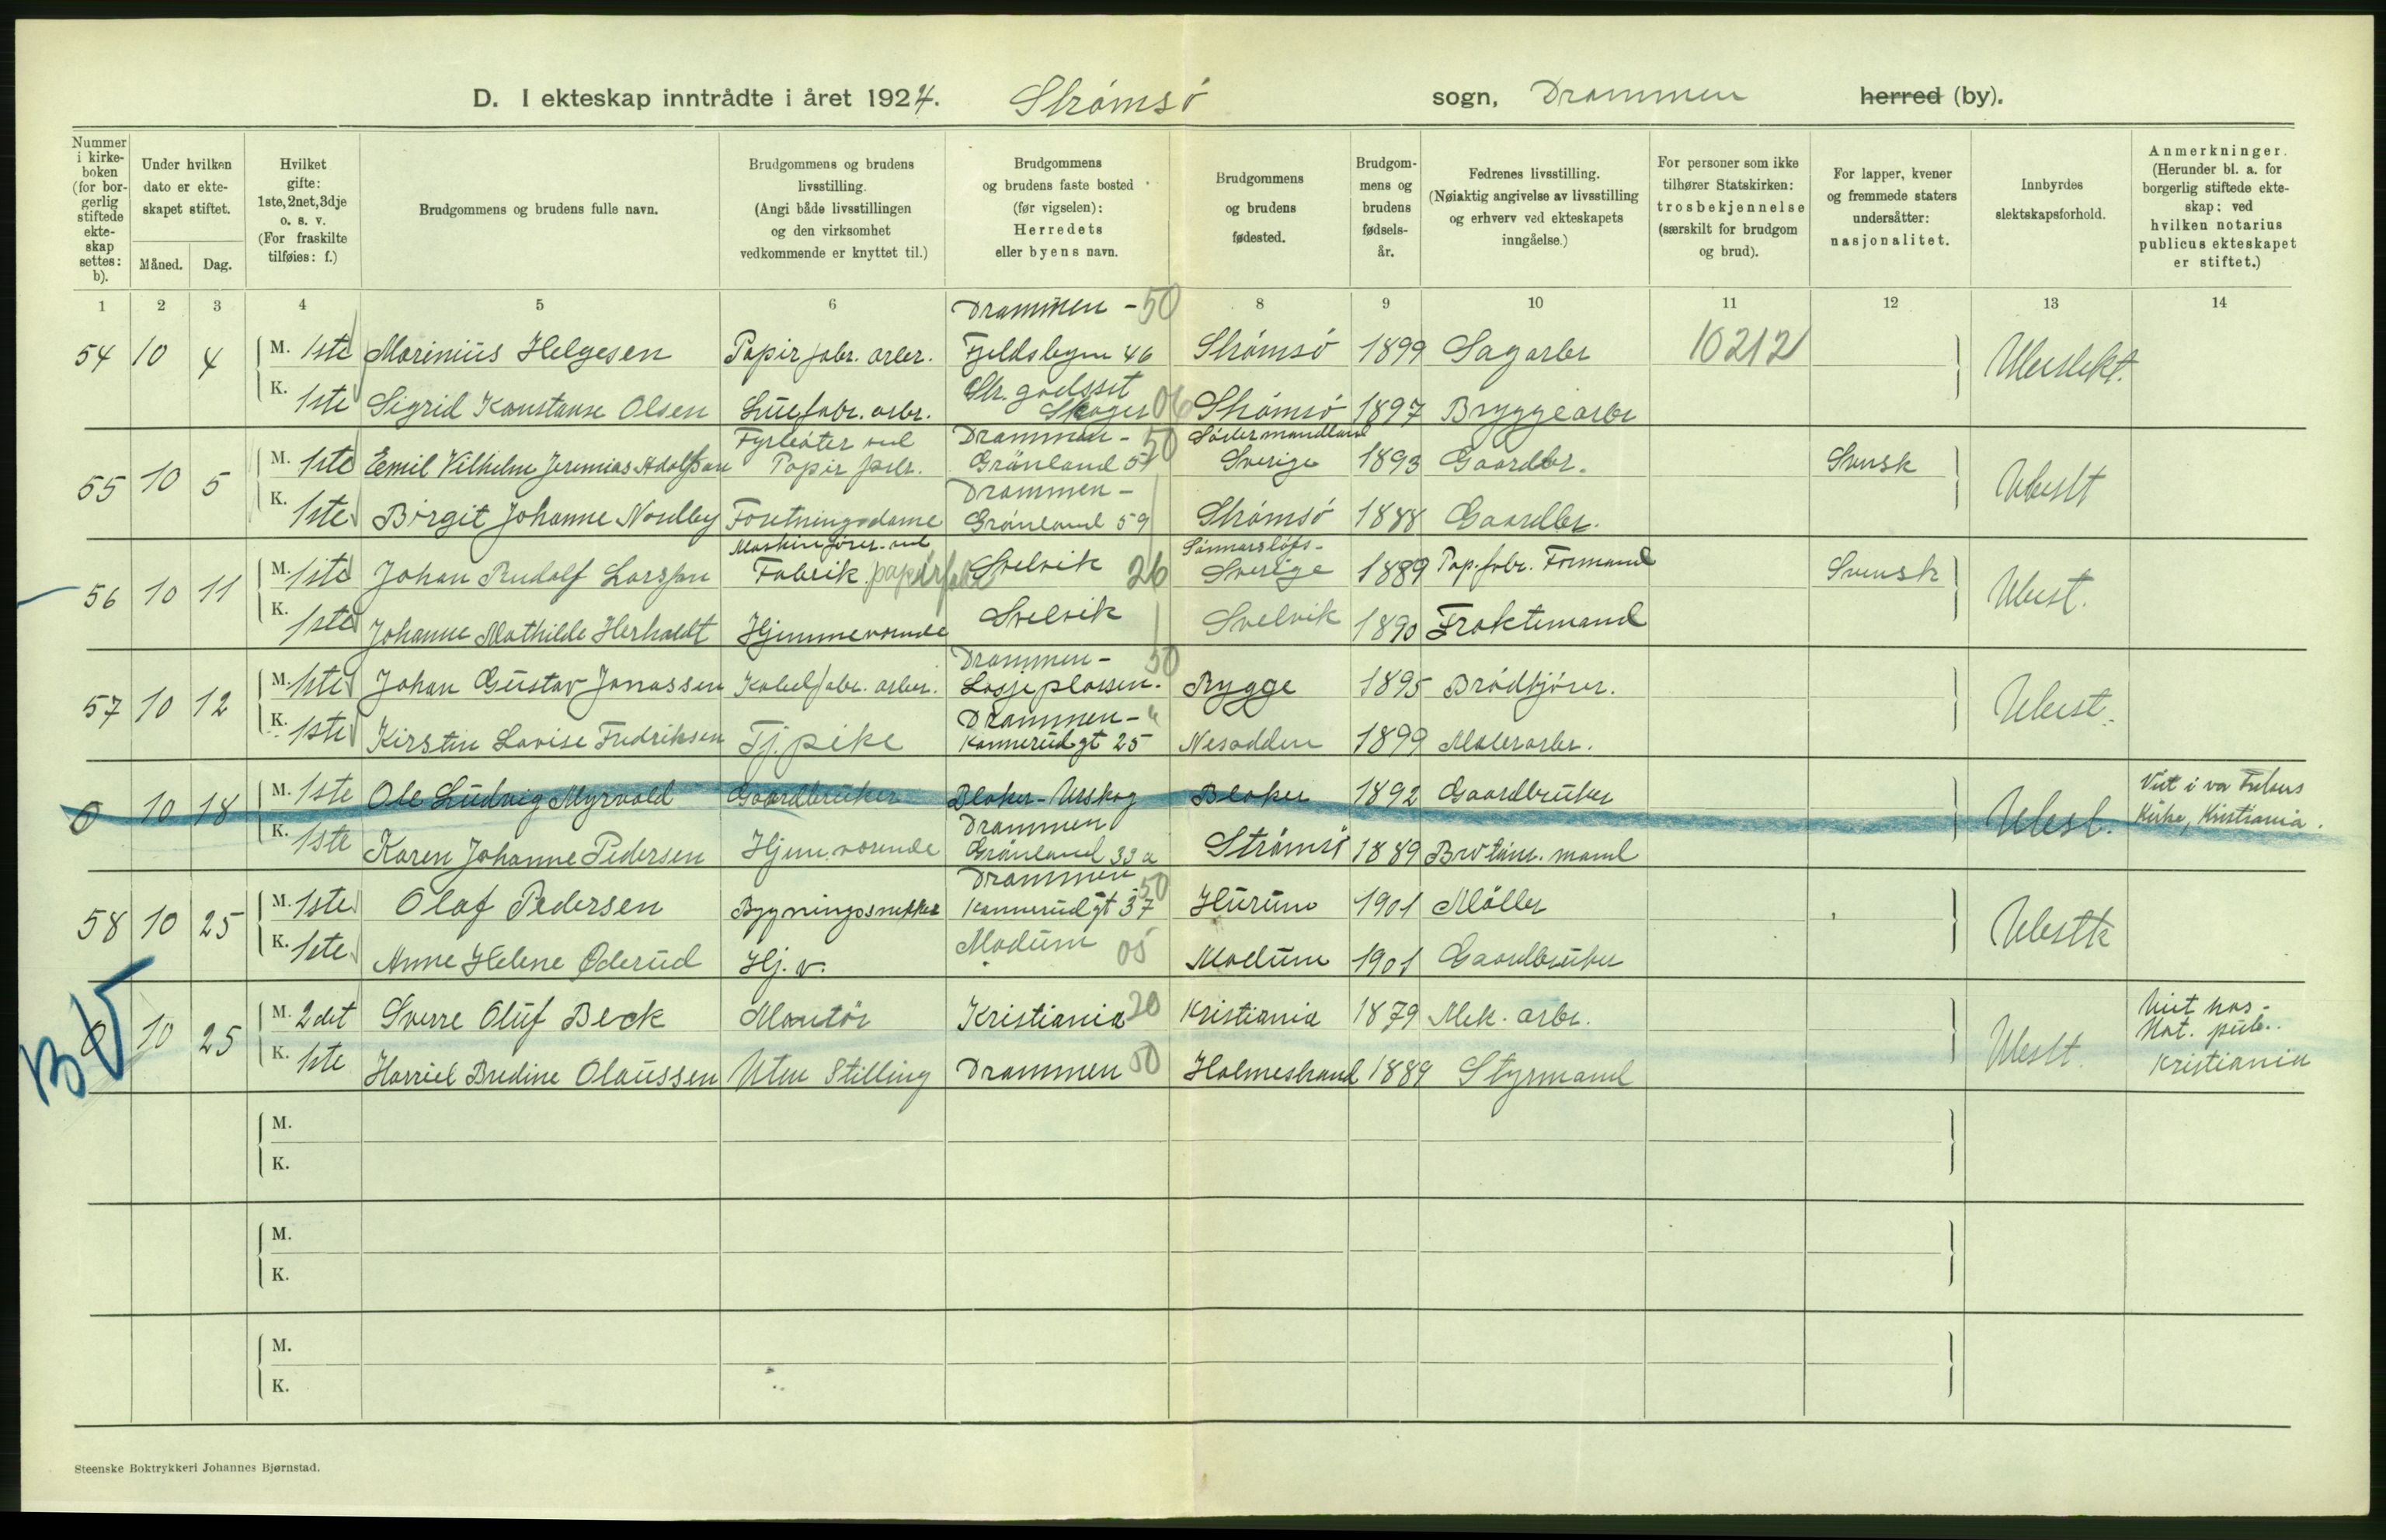 D. I ekteskap inntrådte i året 1924. Strømsø sogn, Drammen herred (by).
Nummer i kirkeboken (for borgerlig stiftede ekteskap settes: b).
Under hvilken dato er ekteskapet stiftet.
Måned. Dag.
Hvilket gifte: 1ste, 2net, 3dje o. s. v. (For fraskilte tilføies: f.)
Brudgommens og brudens fulle navn.
Brudgommens og brudens livsstilling. (Angi både livsstillingen og den virksomhet vedkommende er knyttet til.)
Brudgommens og brudens faste bosted (før vigselen): Herredets eller byens navn.
Brudgommens og brudens fødested.
Brudgommens og brudens fødselsår.
Fedrenes livsstilling. (Nøiaktig angivelse av livsstilling og erhverv ved ekteskapets inngåelse.)
For personer som ikke tilhører Statskirken: trosbekjennelse (særskilt for brudgom og brud).
For lapper, kvener og fremmede staters undersåtter: nasjonalitet.
Innbyrdes slektskapsforhold.
Anmerkninger. (Herunder bl. a. for borgerlig stiftede ekteskap: ved hvilken notarius publicus ekteskapet er stiftet.)
1 2 3 4 5 6 8 9 10 11 12 13 14
54 10 4 M. 1ste Marinius Helgesen Papirfabr. arbr. Drammen - 50 Strømsø 1899 Sagarbr 10212 Ubeslekt.
K. 1ste Sigrid Konstanse Olsen Luefabr. arbr. Str. godset Skoger 06 Strømsø 1897 Bryggearbr
55 10 5 M. 1ste Emil Vilhelm Jeremias Adolfsson Fyrbøter ved Papirfabr. Drammen - 50 Grønland Södermanland Sverige 1893 Gaardbr. Svensk Ubeslt
K. 1ste Birgit Johanne Nordby Foretningsdame Drammen - Grønland 59 Strømsø 1888 Gaardbr.
56 10 11 M. 1ste Johan Rudolf Larsson Maskinfører ved Fabrik. papirfabr Svelvik 26 Sverige 1889 Pap. fabr. Formand Svensk Ubest.
K. 1ste Johanne Mathilde Herholdt Hjemmeværende Svelvik Svelvik 1890 Fraktemand
57 10 12 M. 1ste Johan Gustav Jonassen Kabelfabr. arbr. Drammen - 50 Losjeplassen. Rygge 1895 Brødkjører. Ubest.
K. 1ste Kirstin Lovise Fredriksen Tj. pike Drammen - " Konnerudgt 25 Nesodden 1899 Malerarbr.
0 10 18 M. 1ste Ole Ludvig Myrvold Gaardbruker Blaker - Urskog Blaker 1892 Gaardbruker Ubesl. Viet i vor Frelsers Kirke, Kristiania.
K. 1ste Karen Johanne Pedersen Hjem. værende Drammen Grønland 33 a Strømsø 1889
58 10 25 M. 1ste Olaf Pedersen Bygningssnekker Drammen 50 Konnerudgt 37 Hurum 1901 Møller Ubeslk
K. 1ste Anne Helene Øderud Hj. v. Modum 05 Modum 1901 Gaardbruker
BV 0 10 25 M. 2det Sverre Oluf Beck Montør Kristiania 20 Kristiania 1879 Mek. arbr. Ubeslt. Viet hos Not. pub. Kristiania
K. 1ste Harriet Bredine Olaussen Uten Stilling Drammen 50 Holmestrand 1889 Styrmand
M.
K.
M.
K.
M.
K.
Steenske Boktrykkeri Johannes Bjørnstad.